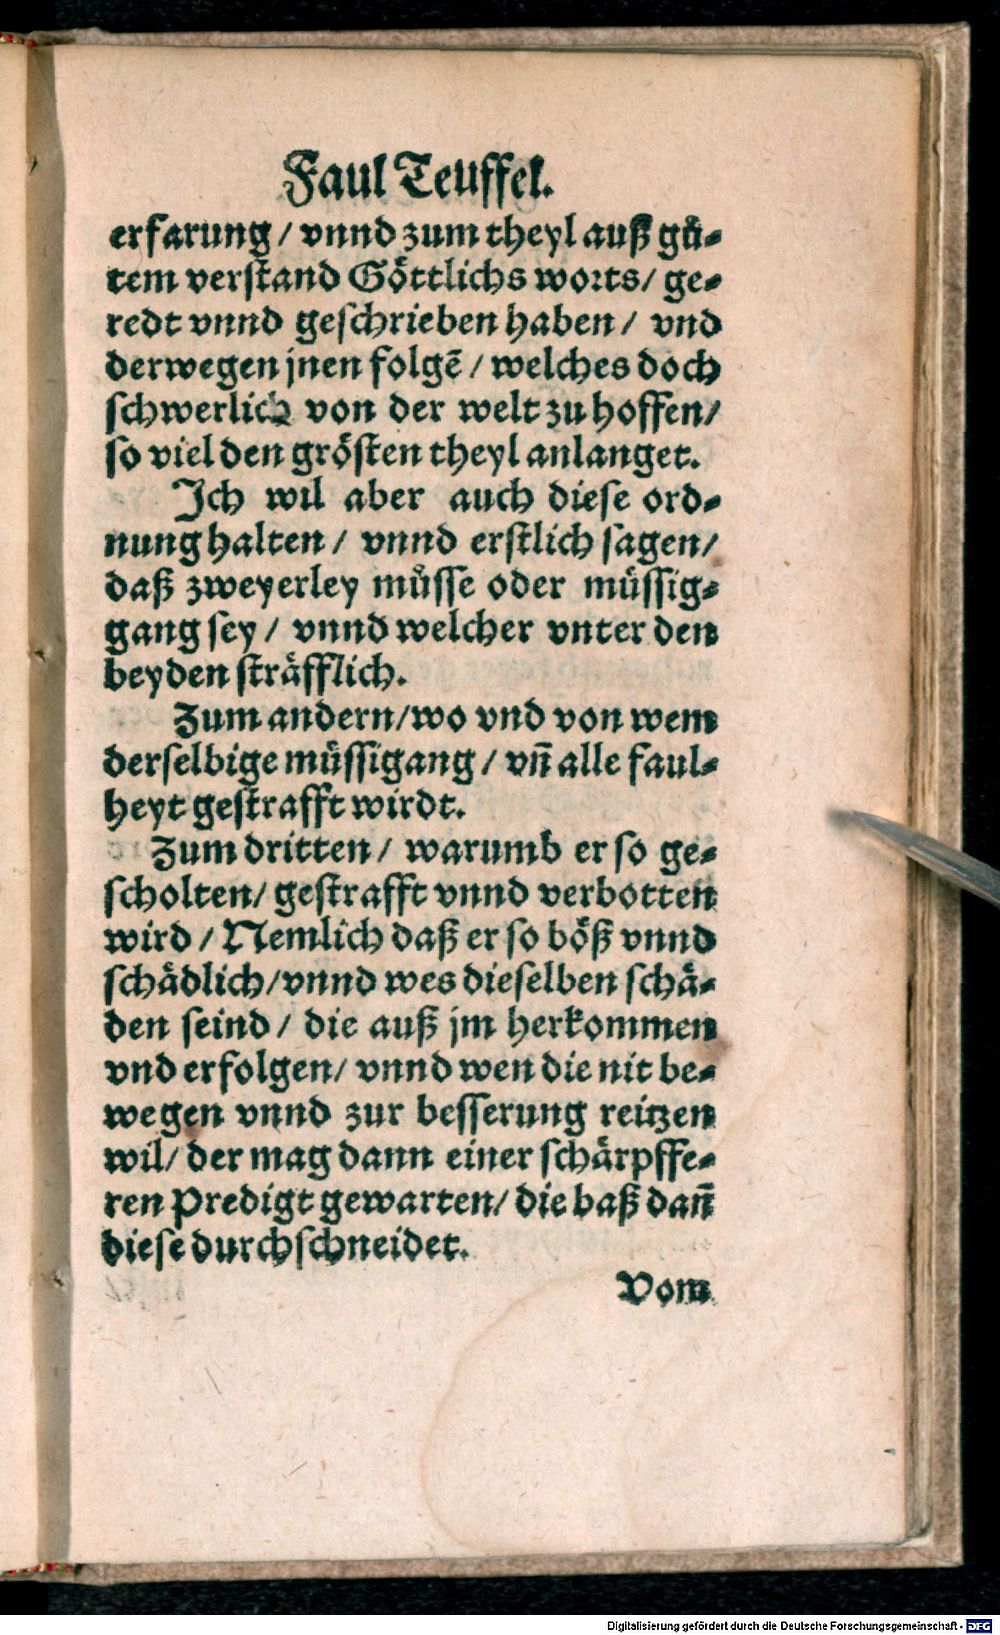 Faul Teuffel.
erfarung / vnnd zum theyl auß gů⸗
tem verstand Göttlichs worts / ge⸗
redt vnnd geschrieben haben / vnd
derwegen jnen folgẽ / welches doch
schwerlich von der welt zu hoffen /
so viel den grösten theyl anlanget.
Ich wil aber auch diese ord⸗
nung halten / vnnd erstlich sagen /
daß zweyerley můsse oder müssig⸗
gang sey / vnnd welcher vnter den
beyden sträfflich.
Zum andern / wo vnd von wem
derselbige müssigang / vn̄ alle faul⸗
heyt gestrafft wirdt.
Zum dritten / warumb er so ge⸗
scholten / gestrafft vnnd verbotten
wird / Nemlich daß er so böß vnnd
schädlich / vnnd wes dieselben schä⸗
den seind / die auß jm herkommen
vnd erfolgen / vnnd wen die nit be⸗
wegen vnnd zur besserung reitzen
wil / der mag dann einer schärpffe⸗
ren Predigt gewarten / die baß dan̄
diese durchschneidet.
Vom
Digitalisierung gefördert durch die Deutsche Forschungsgemeinschaft - DFG